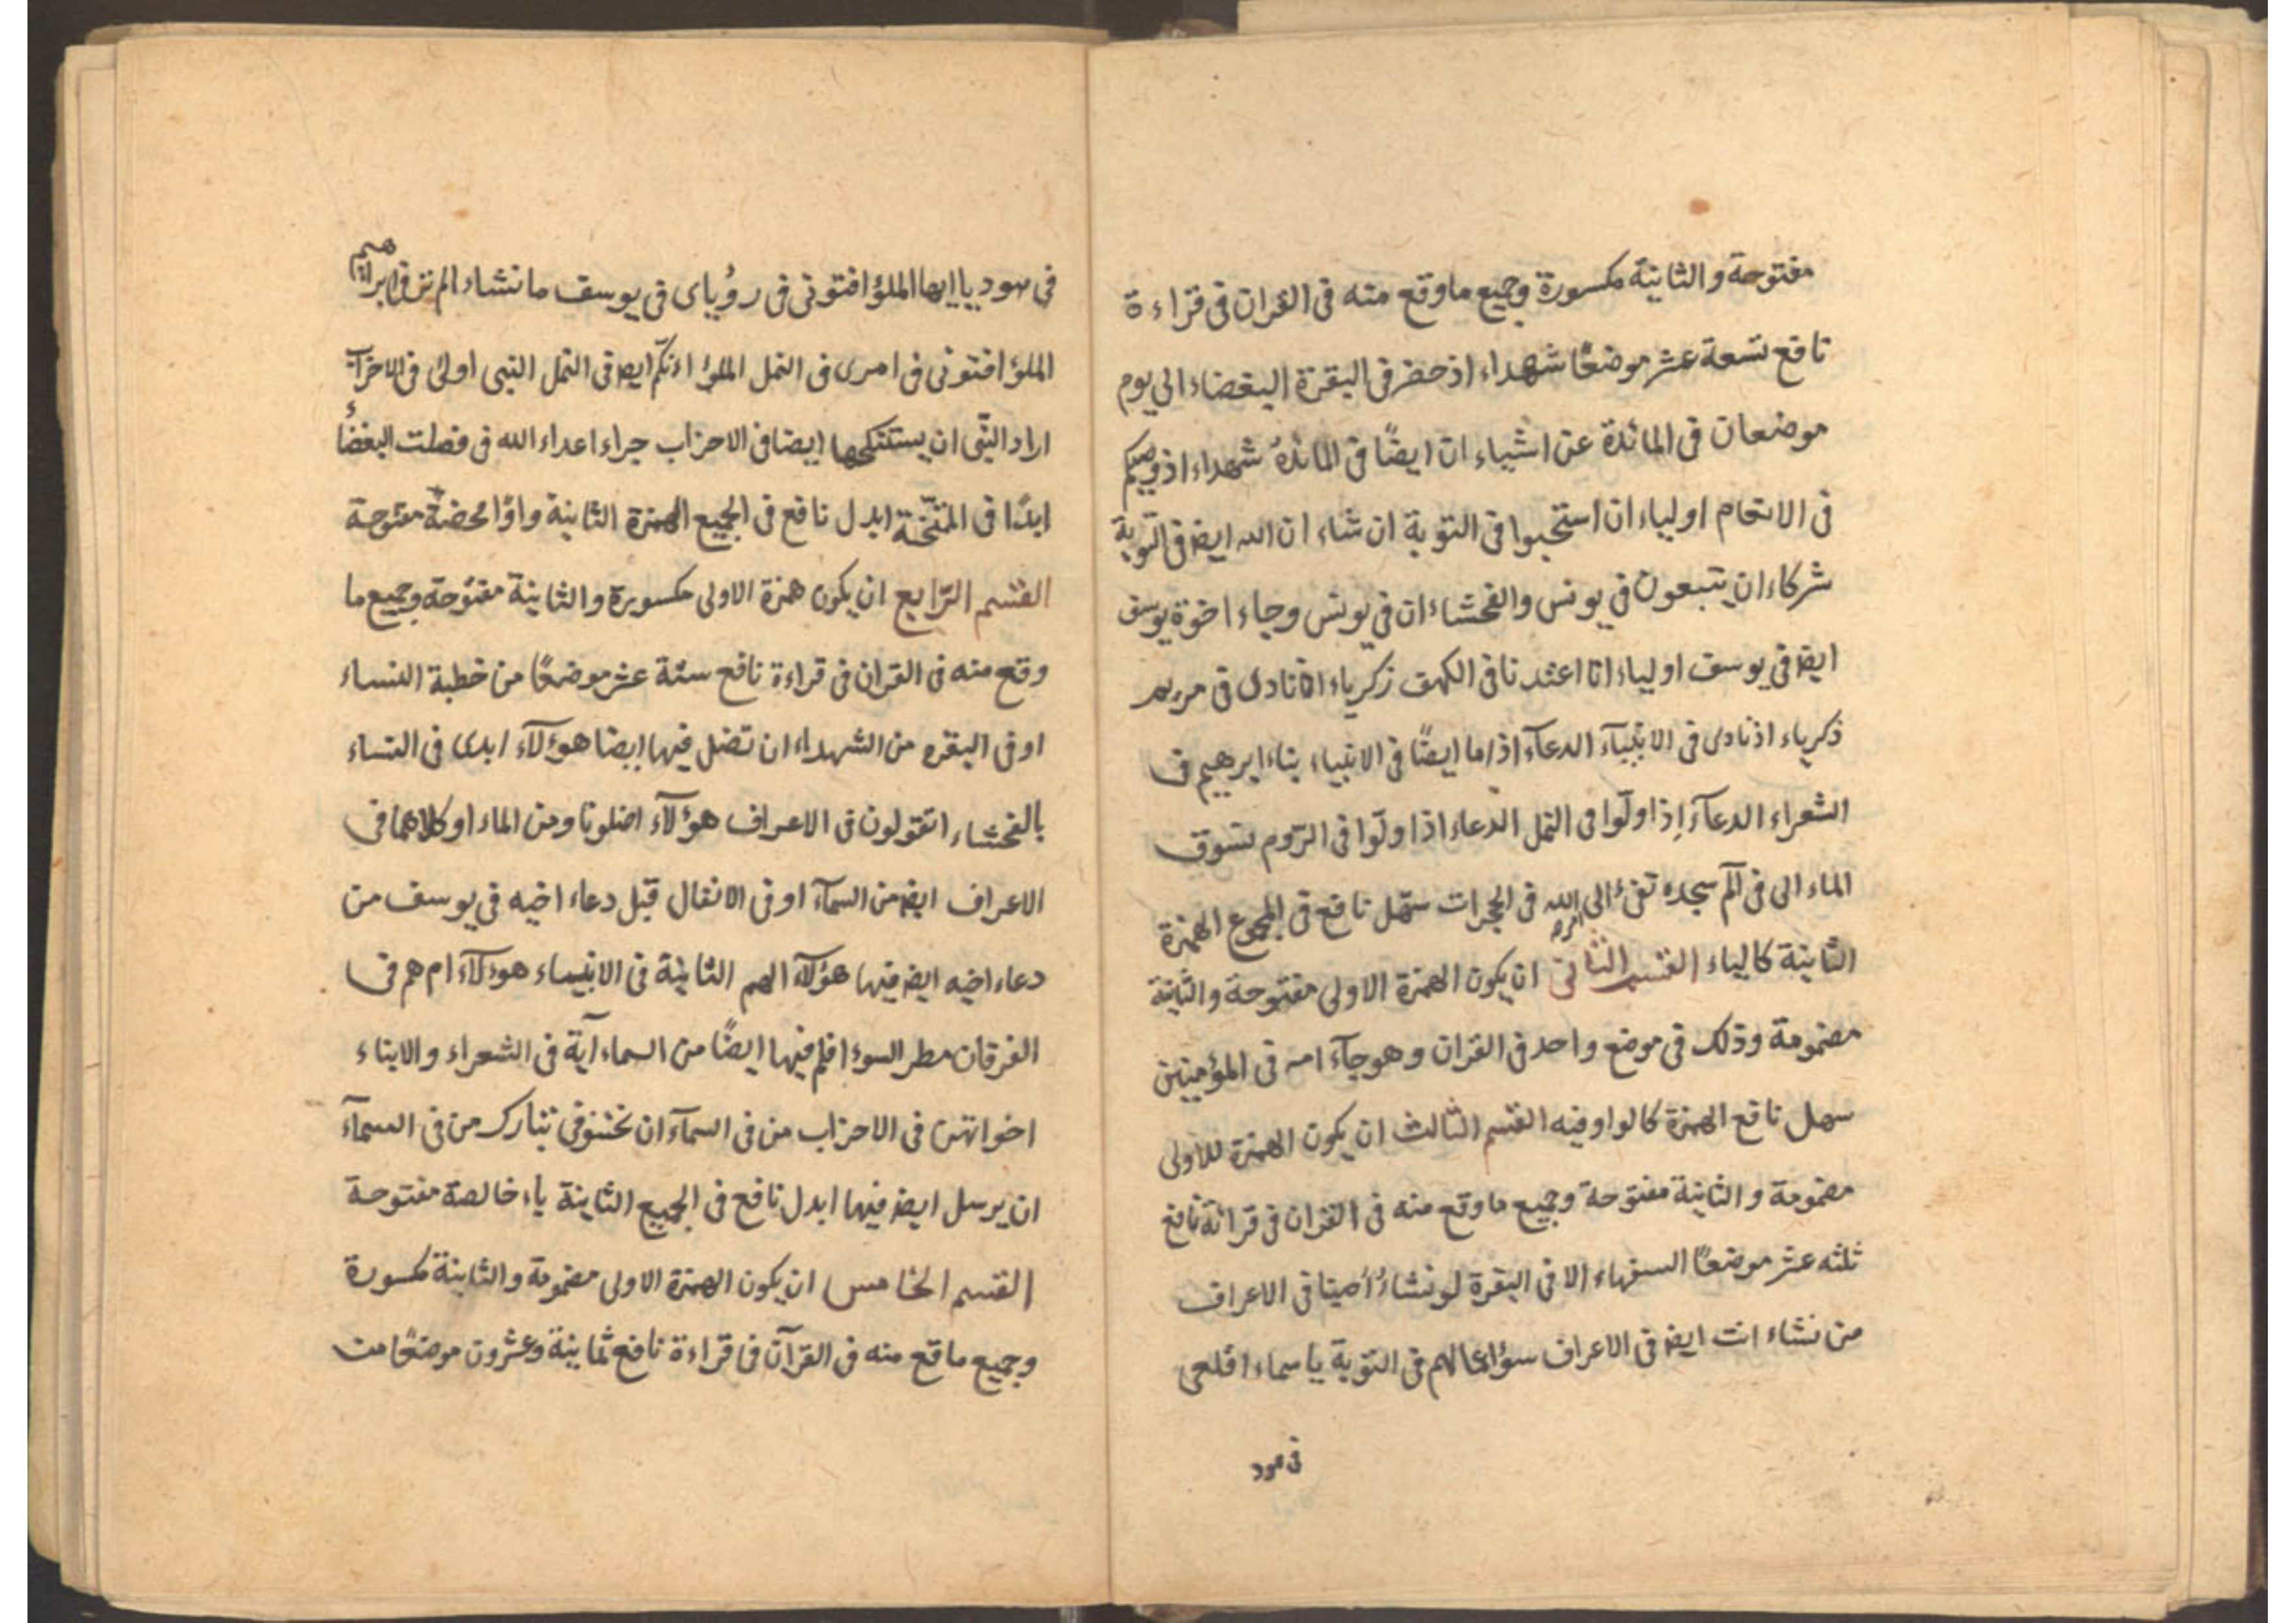 مفتوحة والثانية مكسورة وجميع ما وقع منه فى القران فى قراءة
نافع تسعة عشر موضعًا شهداء اذ حضر فى البقرة البغضاء الى يوم
موضعان فى المائدة عن اشياء ان ايضًا فى المائدة شهداء اذ وصيكم
فى الانعام اولياء ان استحبوا فى التوبة ان شاء ان الله ايضا فى التوبة
شركاء ان يتبعون فى يونس والفحشاء ان فى يونس وجاء اخوة يوسف
ايضا فى يوسف اولياء انا اعتدنا فى الكهف زكرياء اذ نادى فى مريم
ذكرياء اذ نادى فى الانبيآء الدعآء اذا ما ايضًا فى الانبياء بناء ابرهيم فى
الشعراء الدعآء اِذا ولّوا فى النمل الدعاء اذا ولّوا فى الرّوم نسوق
الماء الى فى آلم سجده تفئ الى امر الله فى الحجرات سهّل نافع فى المجموع الهمزة
الثانية كالياء القسم الثانى ان يكون الهمزة الاولى مفتوحة والثانية
مضمومة وذلك فى موضع واحد فى القران وهو جآء امه فى المؤمنين
سهل نافع الهمزة كالواو فيه القسم الثالث ان يكون الهمزة للاولى
مضمومة والثانية مفتوحة وجميع ما وقع منه فى القران فى قرائة نافع
ثلثه عشر موضعًا السفهاء الا فى البقرة لو نشاءُ اَصبنا فى الاعراف
من نشاء انت ايضا فى الاعراف سؤ اعمالهم فى التوبة يا سماء اقلعى
فى هود
فى هود يا ايها الملؤ افتونى فى رؤياى فى يوسف ما نشاء الم تر فى ابراهيم
الملؤ افتونى فى امرى فى النمل الملؤ ائكم ايضا فى النمل النبى اولى فى الاحزاب
اراد النّبى ان يستنكحها ايضا فى الاحزاب جزاء اعداء الله فى فصلت البغضاُ
ابدًا فى الممتحنة ابدل نافع فى الجميع الهمزة الثانية واوًا محضة مفتوحة
القسم الرّابع ان يكون همزة الاولى مكسورة والثانية مفتوحة وجميع ما
وقع منه فى القران فى قراءة نافع ستة عشر موضعًا من خطبة النساء
او فى البقره من الشهداء ان تضل فيها ايضا هؤلآء ابدى فى النساء
بالفحشاء اتقولون فى الاعراف هؤلآء اضلونا ومن الماء او كلاهما فى
الاعراف ايضا من السمآء او فى الانفال قبل دعاء اخيه فى يوسف من
دعاء اخيه ايضا فيها هؤلآء الهم الثانية فى الانبيىاء هوءلآء ام هم فى
الفرقان مطر السوء افلم فيها ايضًا من السماء آية فى الشعراء والابناء
اخواتهن فى الاحزاب من فى السمآء ان تخسف فى تبارك من فى السمآء
ان يرسل ايضا فيها ابدل نافع فى الجميع الثانية ياء خالصة مفتوحة
القسم الخامس ان يكون الهمزة الاولى مضمومة والثانية مكسورة
وجميع ما قع منه فى القرآن فى قراءة نافع ثمانية وعشرون موضعًا من